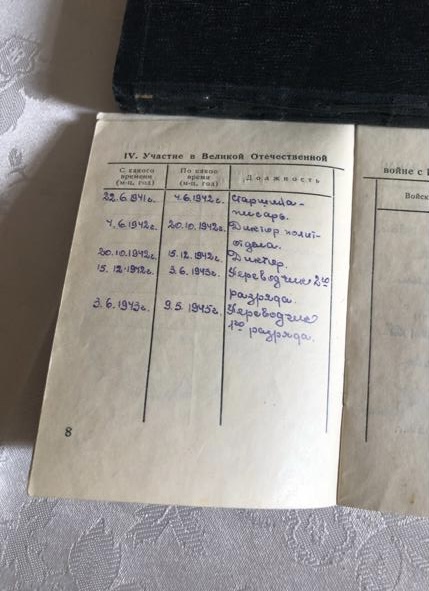 IV. Участие в Великой Отечественной
С какого времени (м-ц, год)
По какое время (м-ц, год)
Должность
22.6.1941г. 4.6.1942г. Старшина-
писарь.
4.6.1942г. 20.10.1942г. Диктор полит-
отдела.
20.10.1942г. 15.12.1942г. Диктор.
15.12.1942г. 3.6.1943г. Переводчик 2го
разряда.
3.6.1943г. 9.5.1945г. Переводчик
1го разряда.
8
войне с
Войск